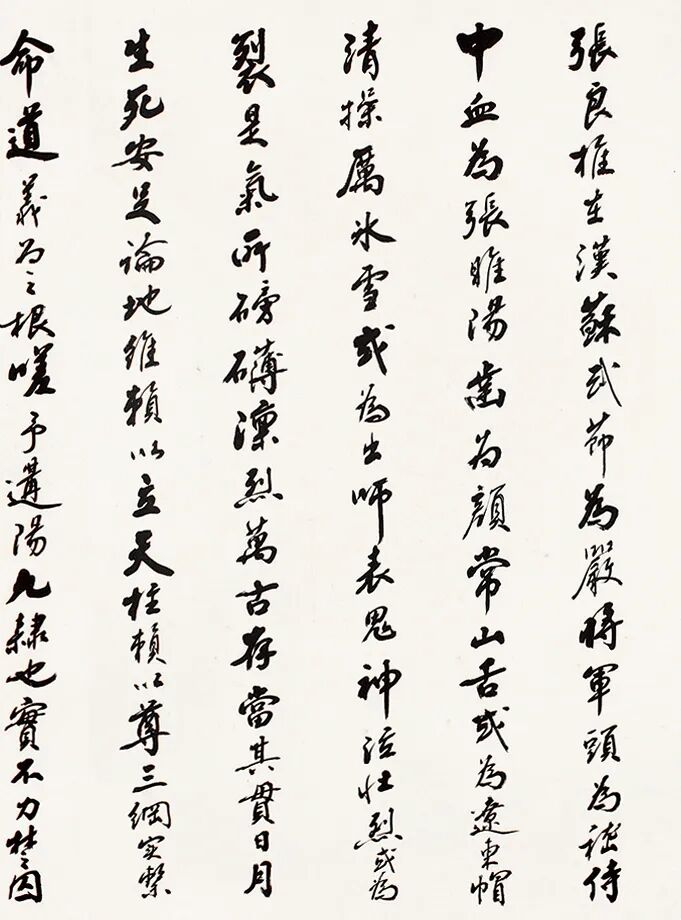 張良椎在漢蘇武節為嚴將軍頭為嵇侍
中血為張睢陽齒為顏常山舌或為遼東帽
清操厲冰雪或為出師表鬼神泣壯烈或為
裂是氣所磅礴凜烈萬古存當其貫日月
生死安足論地維賴以立天柱賴以尊三綱實繫
命道義為之根嗟予遘陽九隸也實不力楚囚